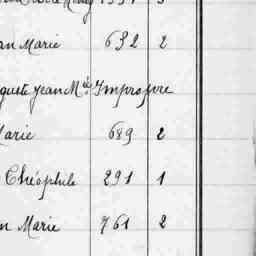 an Marie 632 2
guste Jean M.ie Impropre
Marie 689 2
Théophile 291 1
n Marie 761 2